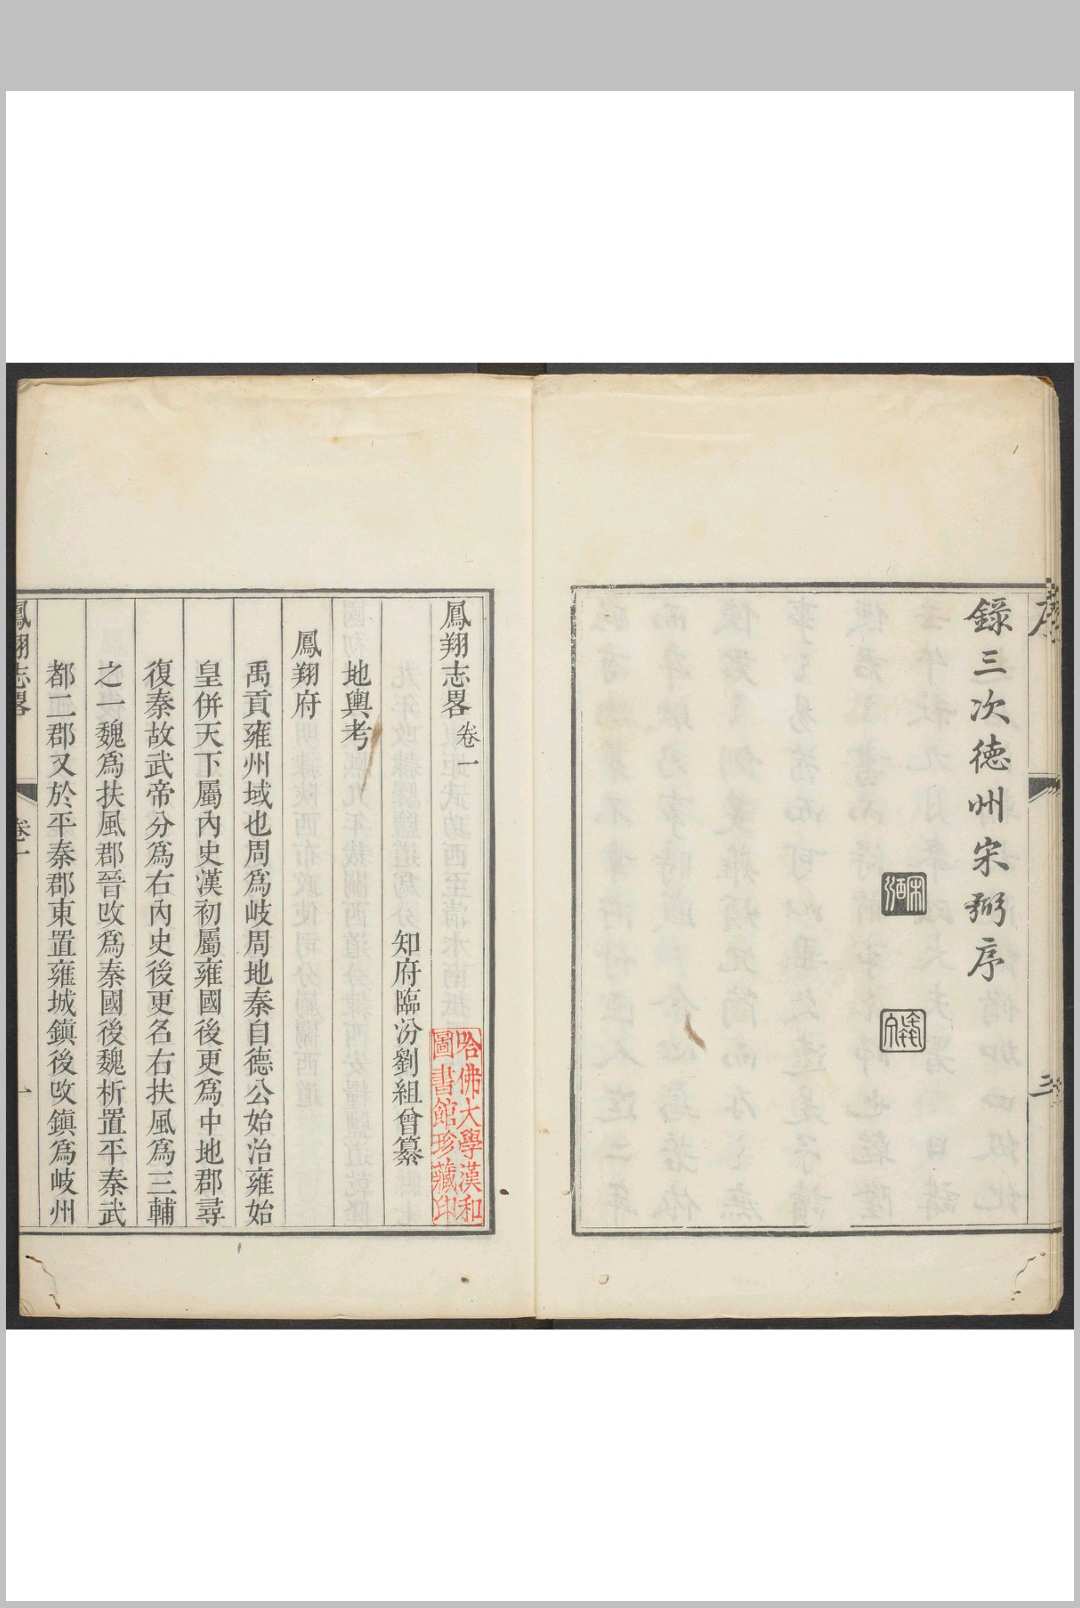 錄三次德州宋弼序
三
鳳翔志畧卷一
知府臨汾劉組曾纂
哈佛大學漢和
圖書館珍藏印
地輿考
鳳翔府
禹貢雍州域也周爲岐周地秦自德公始治雍始
皇併天下屬內史漢初屬雍國後更爲中地郡尋
復秦故武帝分爲右內史後更名右扶風爲三輔
之一魏爲扶風郡晉改爲秦國後魏析置平秦武
都二郡又於平秦郡東置雍城鎮後改鎮爲岐州
鳳翔志畧
卷一
一